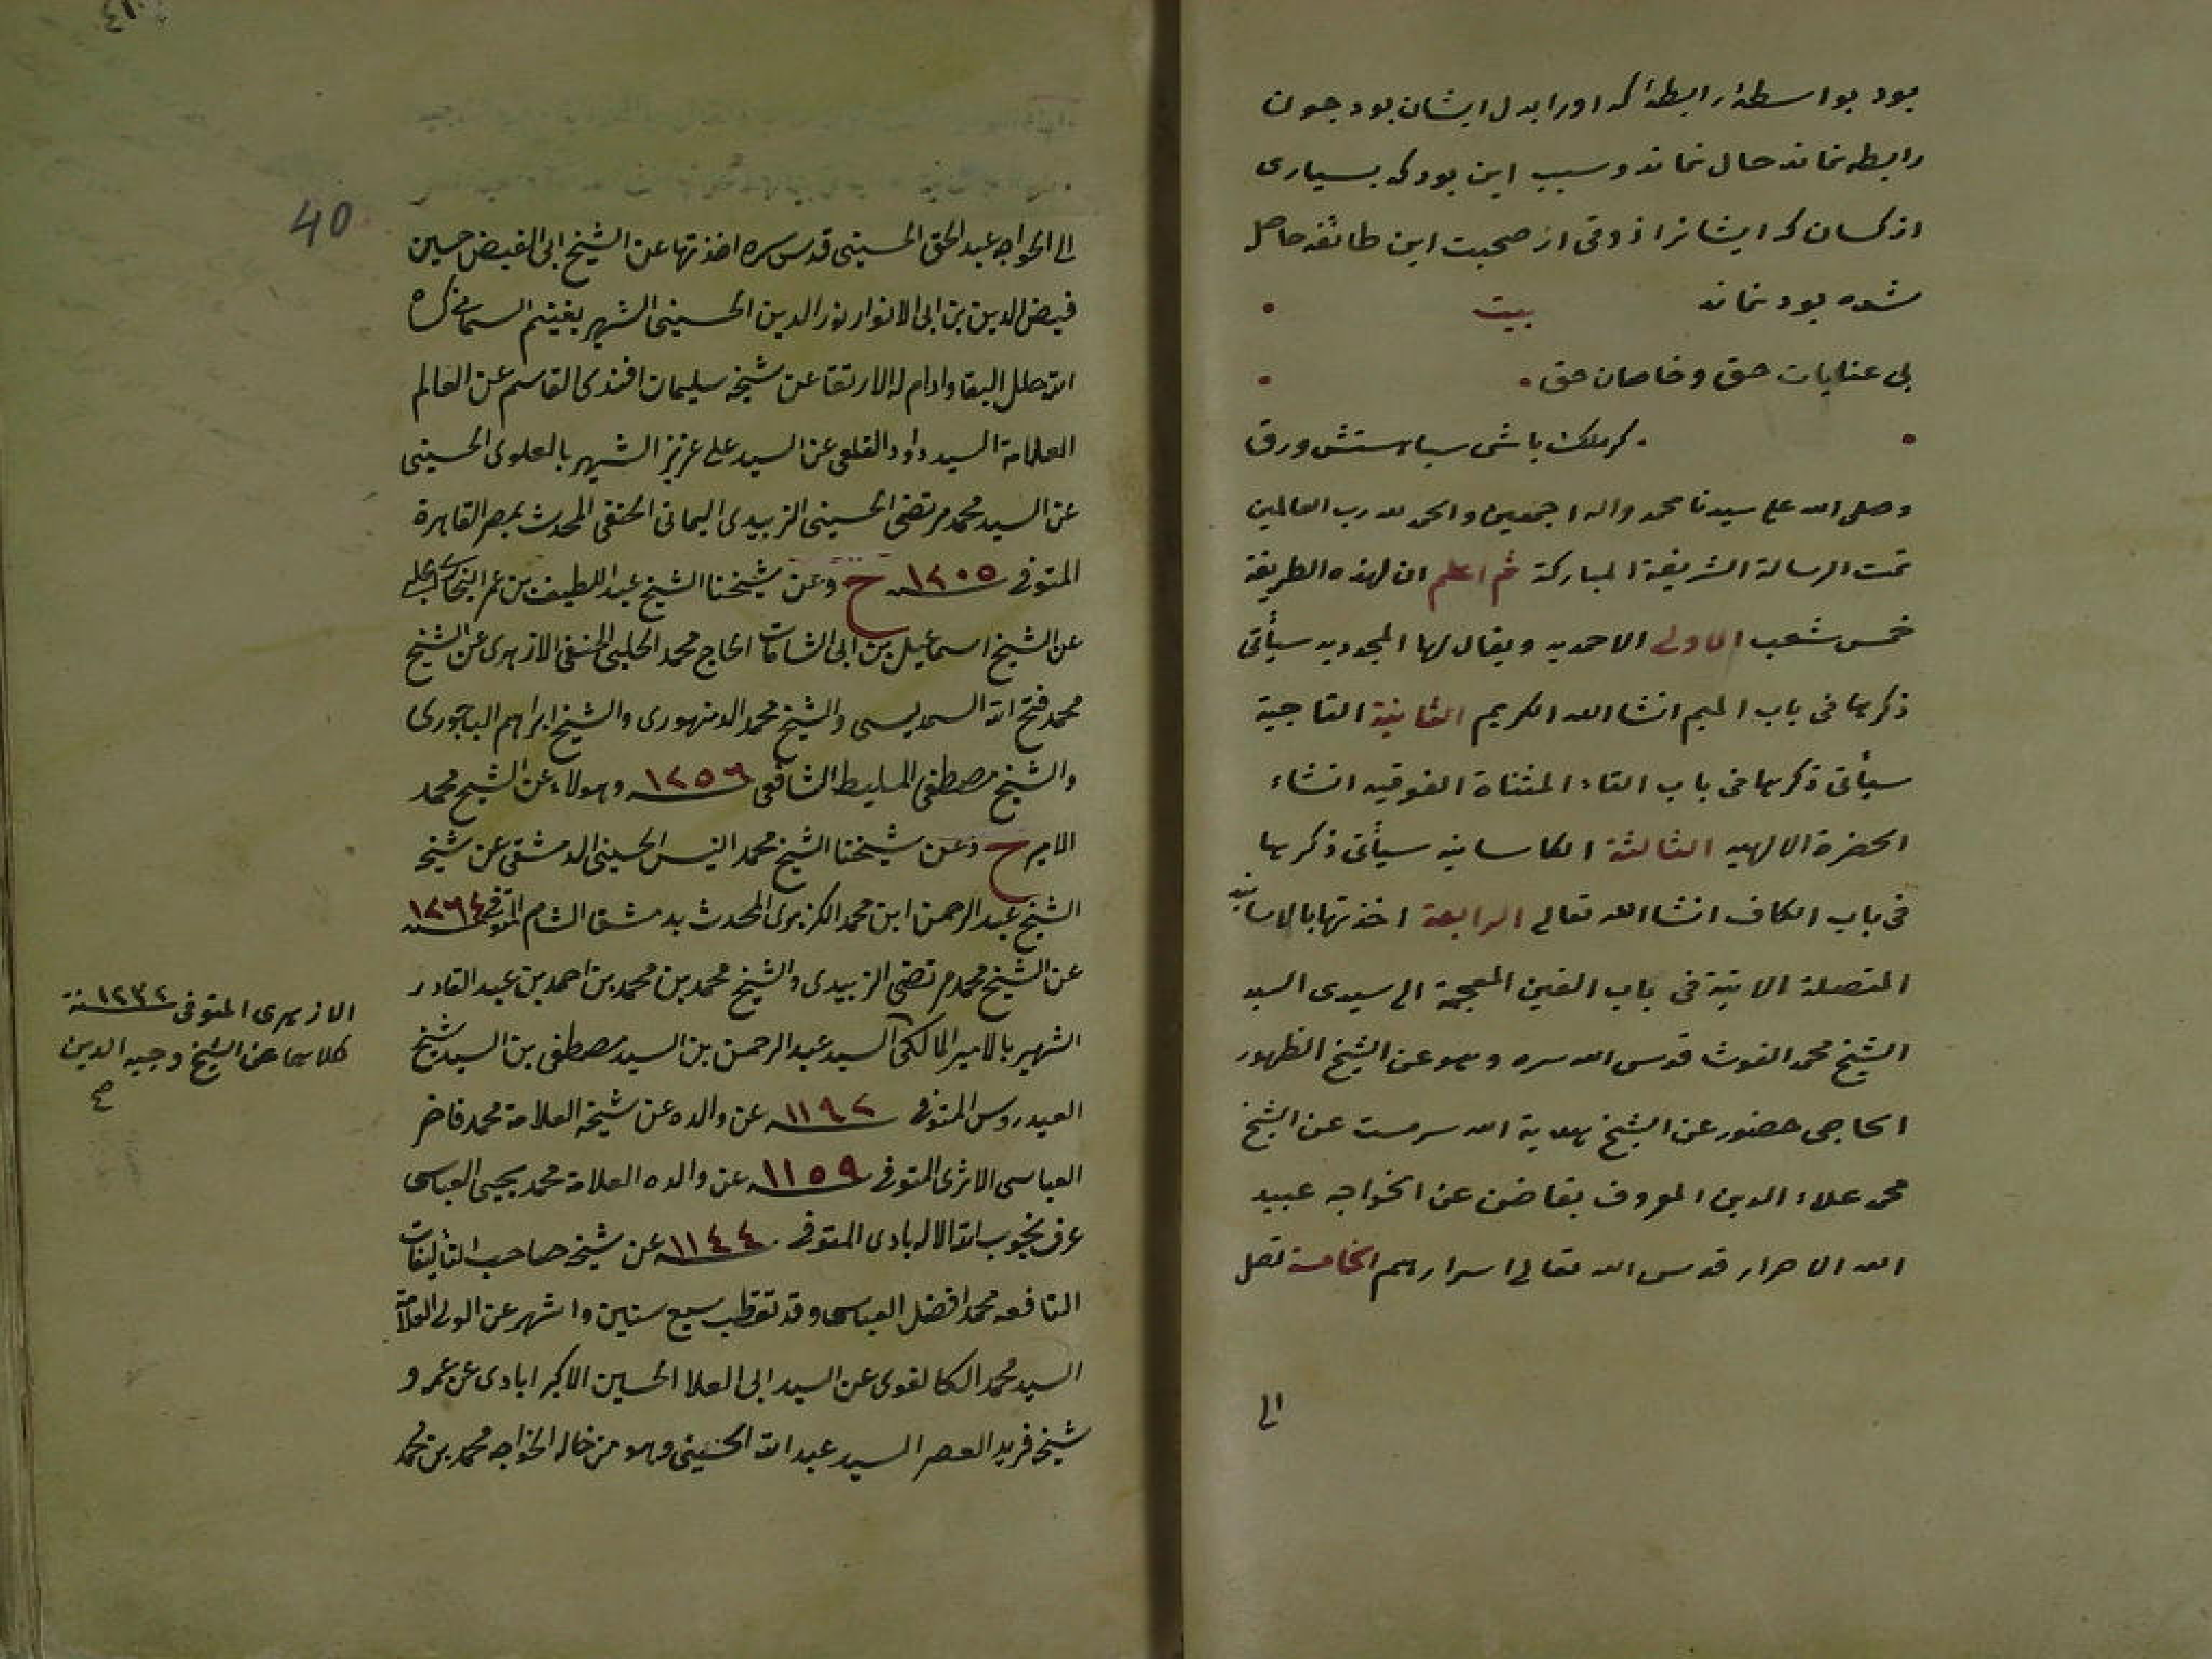 بود بواسطهٔ رابطهٔ که اورا بدل ایشان بود چون
رابطه نماند حال نماند و سبب این بود که بسیاری
از کسان که ایشانرا ذوقی از صحبت این طائفه حاصل
شده بود نماند بیت
بی عنایات حق و خاصان حق
کر ملک باشی سیاهستش ورق
وصلی الله علی سیدنا محمد واله اجمعین والحمد لله رب العالمین
تمت الرسالة الشریفة المبارکة ثم اعلم ان لهذه الطریقة
خمس شعب الاولی الاحمدیه ویقال لها المجددیه سیأتی
ذکرها فی باب المیم انشا الله الکریم الثانیة التاجیة
سیأتی ذکرها فی باب التاء المثناة الفوقیه انشاء
الحضرة الالهیه الثالثة الکاسانیه سیأتی ذکرها
فی باب الکاف انشا الله تعالی الرابعة اخذتها بالاسانید
المتصلة الاتیة فی باب الغین المعجمة الی سیدی السید
الشیخ محمد الغوث قدس الله سره وهو عن الشیخ الظهور
الحاجی حضور عن الشیخ هدیة الله سرمست عن الشیخ
محمد علاء الدین المعروف بقاضن عن الخواجه عبید
الله الاحرار قدس الله تعالی اسرارهم الخامسة تصل
الی
40
الی الخواجه عبد الحق الحسینی قدس سره اخذتها عن الشیخ ابی الفیض حسین
فیض الدین بن ابی الانوار نور الدین الحسینی الشهیر بغینم
الله حلل البقا وادام له الارتقا عن شیخه سلیمان افندی القاسم عن العالم
العلامة السید داود القلعی عن السید علی عزیز الشهیر بالعلوی الحسینی
عن السید محمد مرتضی الحسینی الزبیدی الیمانی الحنفی المحدث بمصر القاهرة
المتوفی ١٢٠٥ سنه ح وعن شیخنا الشیخ عبد اللطیف بن عمر البخاری
عن الشیخ اسماعیل بن ابی الشامات الحاج محمد الحلبی الحنفی الازهری عن الشیخ
محمد فتح الله السمدیسی والشیخ محمد الدمنهوری والشیخ ابراهم الباجوری
والشیخ مصطفی المبلیط الشافعی ١٢٥٩ سنه وهولاء عن الشیخ محمد
الامیر ح وعن شیخنا الشیخ محمد الیس الحسینی الدمشقی عن شیخه
الشیخ عبد الرحمن ابن محمد الکزبری المحدث بدمشق الشام المتوفی ١٢٦٤ سنه
عن الشیخ محمد مرتضی الزبیدی والشیخ محمد بن محمد بن احمد بن عبد القادر
الشهیر بالامیر المالکی السید عبد الرحمن بن السید مصطفی بن السید شیخ
العیدروس المتوفی ١١٩٢ سنه عن والده عن شیخه العلامة محمد فاخر
العباسی الاثری المتوفی ١١٥٩ سنه عن والده العلامة محمد یحیی العباسی
عرف بخوب الله الاله بادی المتوفی ١١٤٤ سنه عن شیخه صاحب التألیفات
النافعه محمد افضل العباسی وقد تقطب سبع سنین واشهر عن الولی العلامة
السید محمد الکالفوی عن السید ابی العلا الحسین الاکبرابادی عن عمه و
شیخه فرید العصر السید عبد الله الحسینی وهو من خاله الخواجه محمد بن محمد
الازهری المتوفی ١٢٣٢ سنة
کلاهما عن الشیخ وجیه الدین
صح